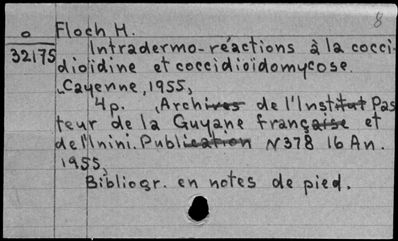 8
o Floch H.
32175 Intradermo-réactions à la cocci-
dioïdine et coccidioïdomycose.
Cayenne, 1955,
4p. Archives de l'Institut Pas
teur de la Guyane française et
de l'Inini. Publication N378 16 An.
1955,
Bibliogr. en notes de pied.